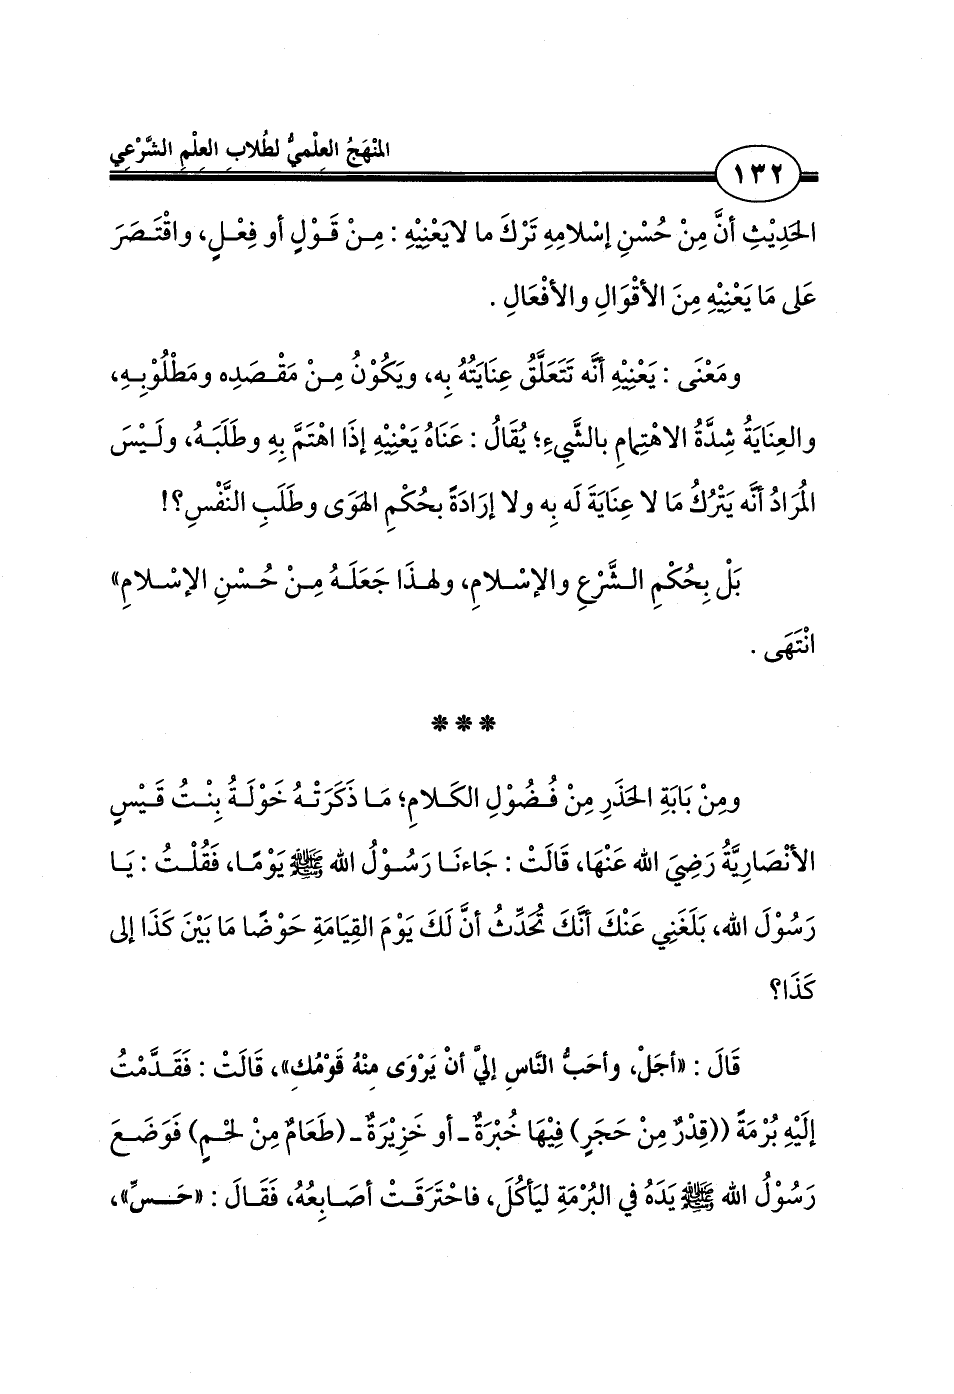 المَنْهَجُ العِلْميُّ لطُلابِ العِلْمِ الشَّرْعِي
١٣٢
الحَدِيْثِ أنَّ مِنْ حُسْنِ إسْلامِهِ تَرْكَ ما لايَعْنِيْهِ : مِـنْ قَـوْلٍ أو فِعْـلٍ، واقْتَـصَرَ
عَلى مَا يَعْنِيْهِ مِنَ الأقْوَالِ والأفْعَالِ .
ومَعْنَى : يَعْنِيْهِ أنَّه تَتَعَلَّقُ عِنايَتُهُ بِه، ويَكُوْنُ مِـنْ مَقْـصَدِه ومَطْلُوْبِـهِ،
والعِنايَةُ شِدَّةُ الاهْتِمامِ بالشَّيءِ؛ يُقَالُ : عَنَاهُ يَعْنِيْهِ إذَا اهْتَمَّ بِهِ وطَلَبَـهُ، ولَـيْسَ
المُرَادُ أنَّه يَتْرُكُ مَا لا عِنايَةَ لَه بِه ولا إرَادَةً بحُكْمِ الهَوَى وطَلَبِ النَّفْسِ؟!
بَلْ بِحُكْمِ الـشَّرْعِ والإسْـلامِ، ولهـذَا جَعَلَـهُ مِـنْ حُـسْنِ الإسْـلامِ»
انْتَهَى .
***
ومِنْ بَابَةِ الحَذَرِ مِنْ فُـضُوْلِ الكَـلامِ؛ مَـا ذَكَرَتْـهُ خَوْلَـةُ بِنْـتُ قَـيْسٍ
الأنْصَارِيَّةُ رَضِيَ الله عَنْهَا، قَالَتْ : جَاءنَـا رَسُـوْلُ الله ﷺ يَوْمًـا، فَقُلْـتُ : يَـا
رَسُوْلَ الله، بَلَغَنِي عَنْكَ أنَّكَ تُحَدِّثُ أنَّ لَكَ يَوْمَ القِيَامَةِ حَوْضًا مَا بَيْنَ كَذَا إلى
كَذَا؟
قَالَ : «أجَلْ، وأحَبُّ النَّاسِ إليَّ أنْ يَرْوَى مِنْهُ قَوْمُكِ»، قَالَتْ : فَقَـدَّمْتُ
إلَيْهِ بُرْمَةً ((قِدْرٌ مِنْ حَجَرٍ) فِيْهَا خُبْرَةٌ ـ أو خَزِيْرَةٌ ـ (طَعَامٌ مِنْ لحْـمٍ) فَوَضَـعَ
رَسُوْلُ الله ﷺ يَدَهُ في البُرْمَةِ ليَأكُلَ، فاحْتَرَقَـتْ أصَـابِعُهُ، فَقَـالَ : «حَـسِّ»،